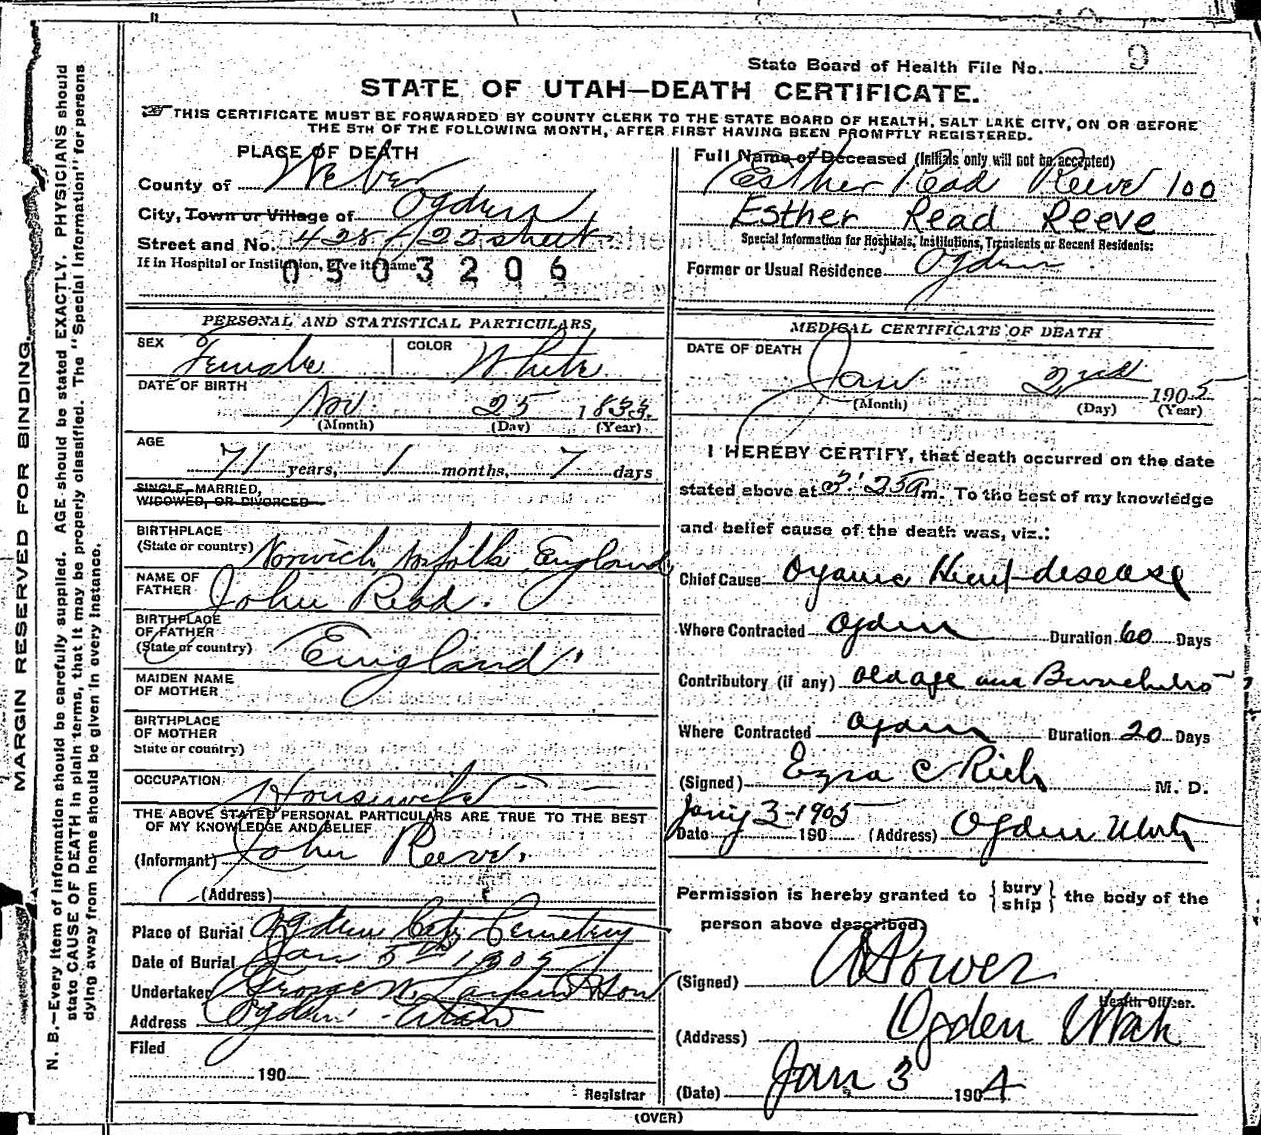 State Board of Health File No. 9
STATE OF UTAH—DEATH CERTIFICATE.
THIS CERTIFICATE MUST BE FORWARDED BY COUNTY CLERK TO THE STATE BOARD OF HEALTH, SALT LAKE CITY, ON OR BEFORE
THE 5TH OF THE FOLLOWING MONTH, AFTER FIRST HAVING BEEN PROMPTLY REGISTERED.
PLACE OF DEATH
County of Weber
City, Town or Village of Ogden
Street and No. 428 / 22 street
If in Hospital or Institution, give it name
0503206
Full Name of Deceased (Initials only will not be accepted)
Esther Read Reeve 100
Esther Read Reeve
Special Information for Hospitals, Institutions, Transients or Recent Residents:
Former or Usual Residence Ogden
PERSONAL AND STATISTICAL PARTICULARS
SEX Female COLOR White
DATE OF BIRTH
Nov 25 1833
(Month) (Day) (Year)
AGE
71 years, 1 months, 7 days
SINGLE, MARRIED,
WIDOWED, OR DIVORCED
BIRTHPLACE
(State or country) Norwich Norfolk England
NAME OF
FATHER John Read.
BIRTHPLACE
OF FATHER
(State or country) England
MAIDEN NAME
OF MOTHER
BIRTHPLACE
OF MOTHER
State or country)
OCCUPATION Housewife
THE ABOVE STATED PERSONAL PARTICULARS ARE TRUE TO THE BEST
OF MY KNOWLEDGE AND BELIEF
(Informant) John Reeve.
(Address)
Place of Burial Ogden City Cemetery
Date of Burial Jan 5th 1905
Undertaker George W. Larkin & Son
Address Ogden Utah
Filed
190
Registrar
MEDICAL CERTIFICATE OF DEATH
DATE OF DEATH
Jan 2nd 1905
(Month) (Day) (Year)
I HEREBY CERTIFY, that death occurred on the date
stated above at 2:25 A m. To the best of my knowledge
and belief cause of the death was, viz.:
Chief Cause Organic Heart disease
Where Contracted Ogden Duration 60 Days
Contributory (if any) old age and Bronchitis
Where Contracted Ogden Duration 20 Days
(Signed) Ezra C Rich M. D.
Date Jany 3-1905 190 (Address) Ogden Utah
Permission is hereby granted to {bury ship} the body of the
person above described.
(Signed) A Power
Health Officer.
(Address) Ogden Utah
(Date) Jan 3 1904
(OVER)
MARGIN RESERVED FOR BINDING.
N. B.—Every item of information should be carefully supplied. AGE should be stated EXACTLY. PHYSICIANS should
state CAUSE OF DEATH in plain terms, that it may be properly classified. The "Special Information" for persons
dying away from home should be given in every instance.